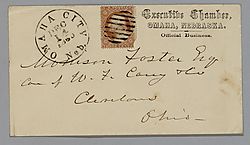 OMAHA CITY
DEC
14
Neb.
Executive Chamber,
OMAHA, NEBRASKA.
Official Business.
Morrison Foster Esq
care of W. F. Cary & Co
Cleveland
Ohio